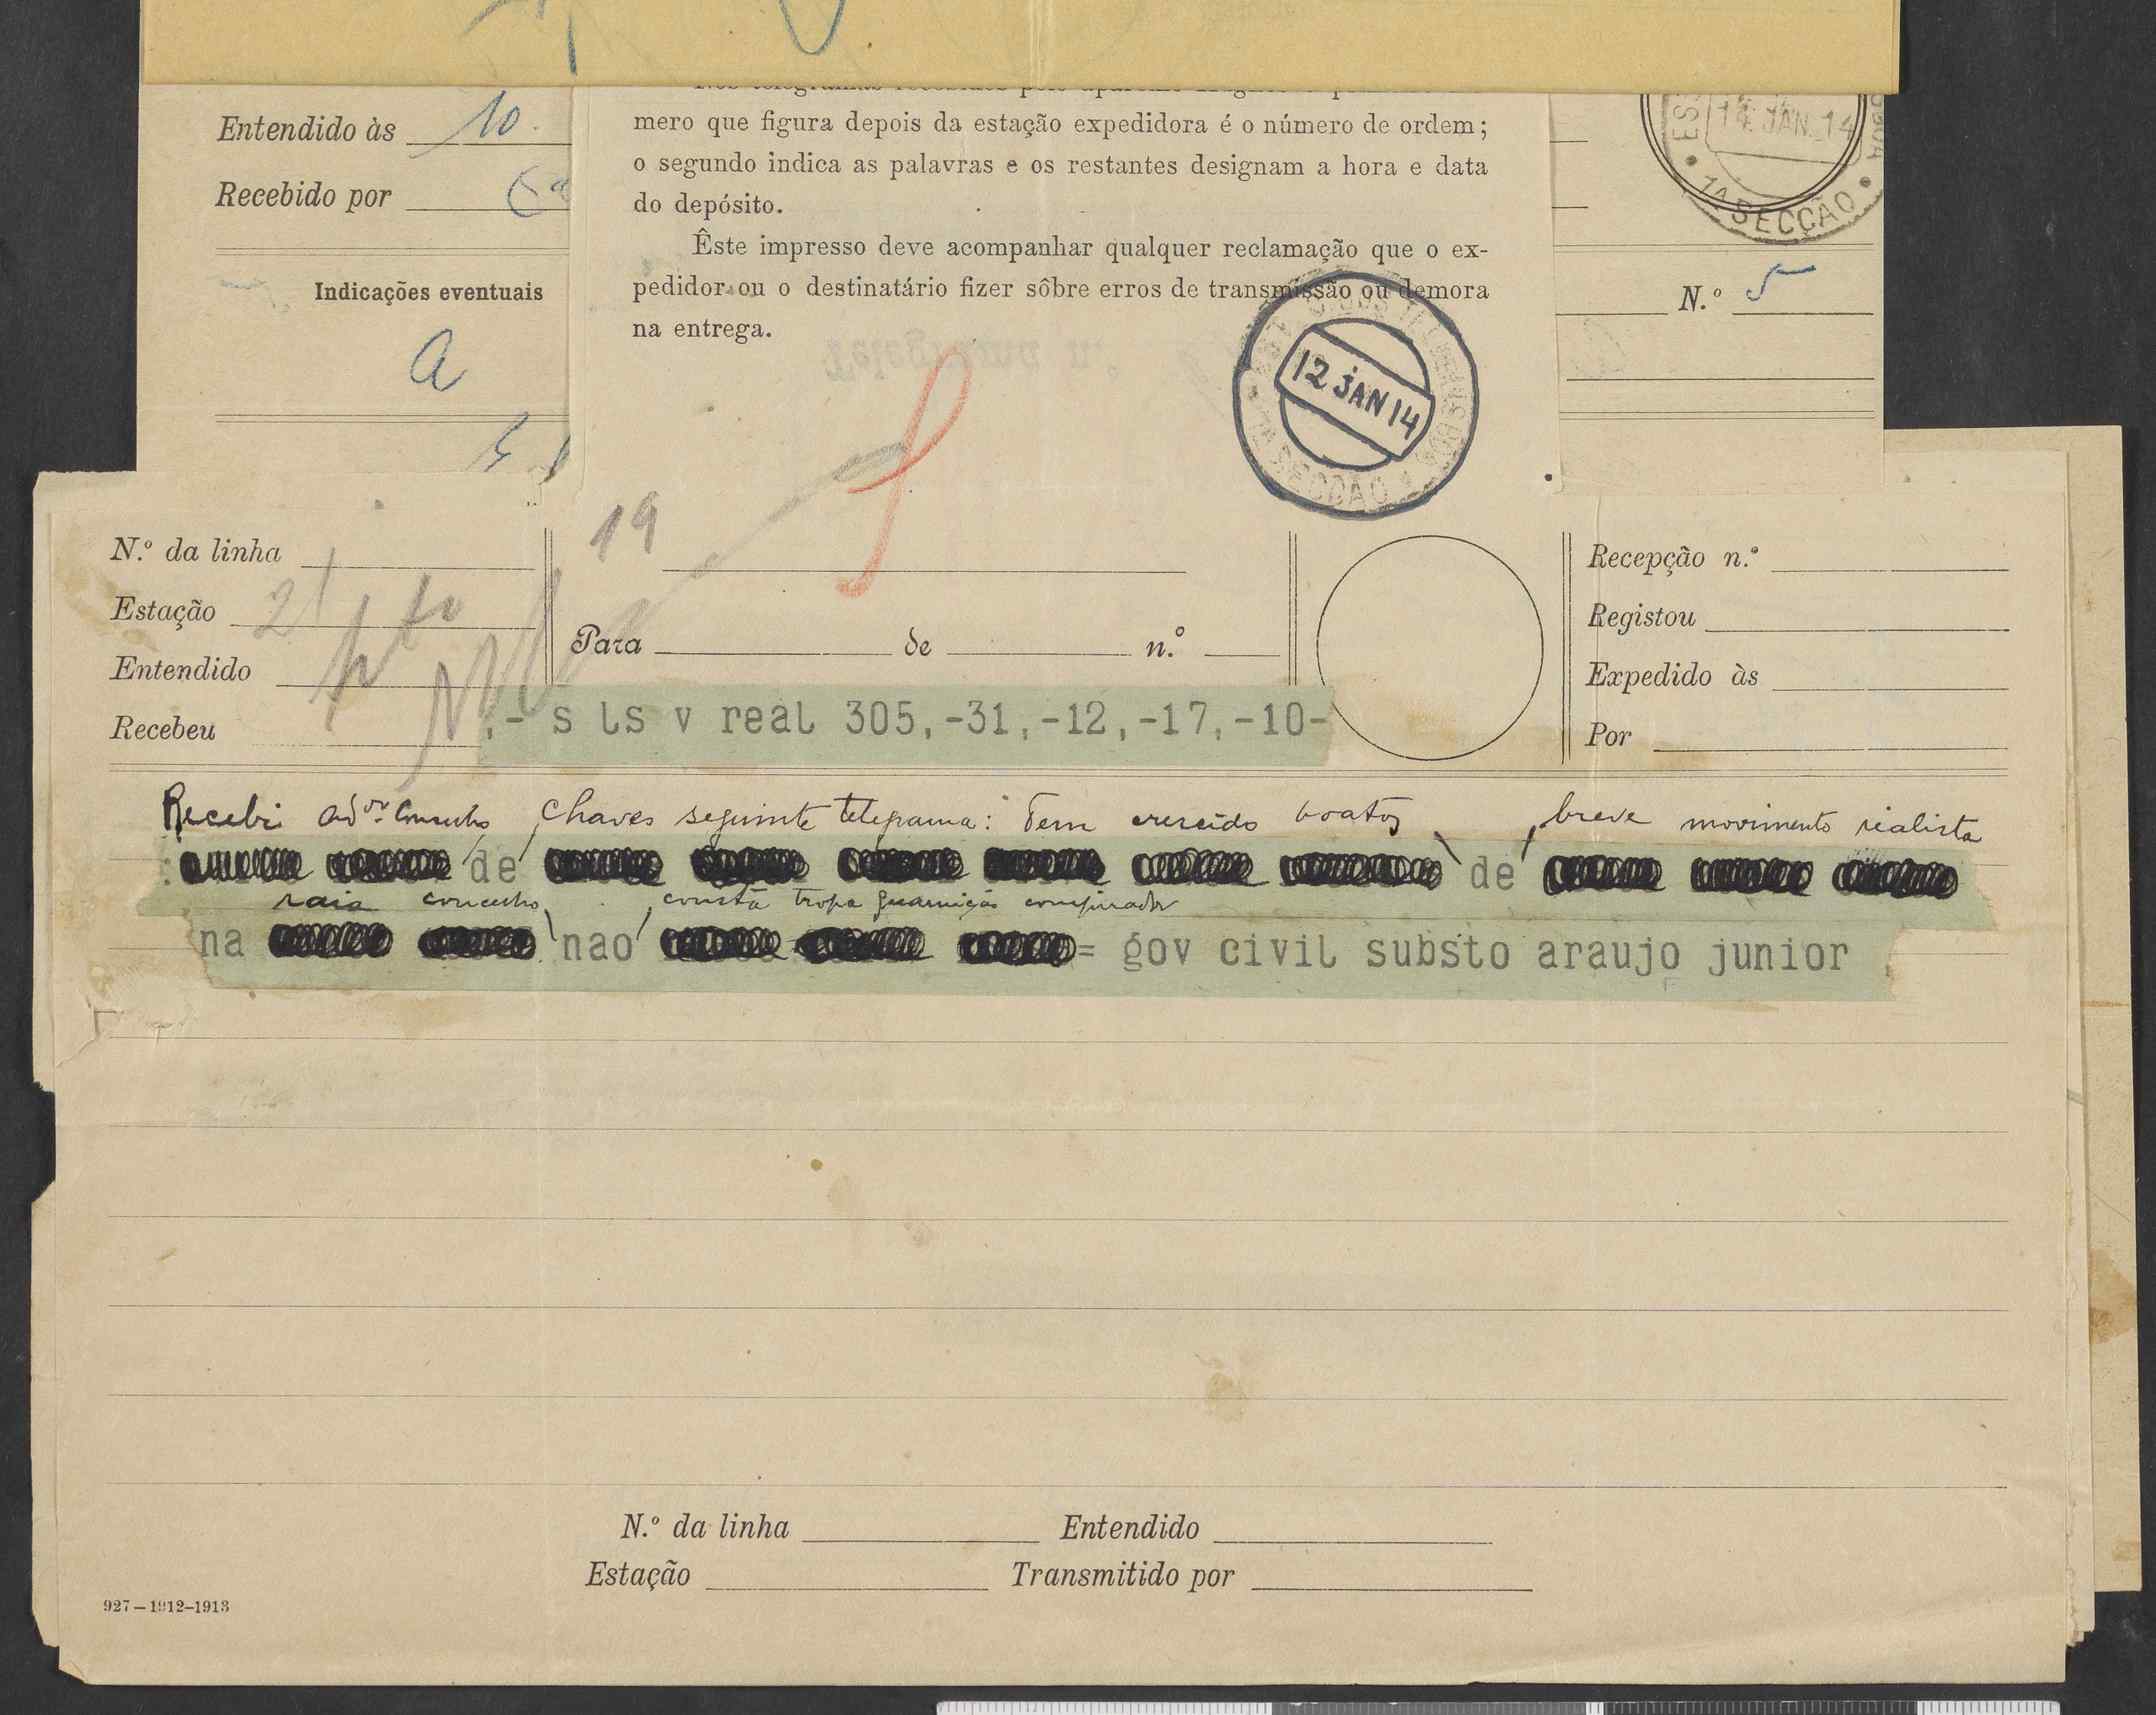 Entendido às 10
Recebido por
Indicações eventuais
a
mero que figura depois da estação expedidora é o número de ordem;
o segundo indica as palavras e os restantes designam a hora e data
do depósito.
Êste impresso deve acompanhar qualquer reclamação que o ex-
pedidor ou o destinatário fizer sôbre erros de transmissão ou demora
na entrega.
12 JAN 14
SECÇÃO
14 JAN 14
1A SECÇÃO
N.º 5
19
N.º da linha
Estação
Entendido
Recebeu
Para de n.º
Recepção n.º
Registou
Expedido às
Por
,- s ls v real 305,-31,-12,-17,-10-
Recebi ador Concelho Chaves seguinte telegrama: Tem crescido boatos breve movimento realista
: de de
raia concelho consta tropa guarnição conspirador
na nao = gov civil substo araujo junior
N.º da linha Entendido
Estação Transmitido por
927—1912-1913